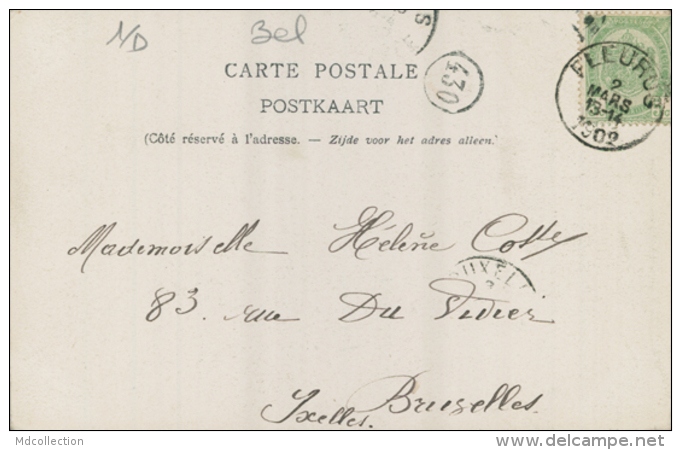 N/D
Bel
S
CARTE POSTALE
POSTKAART
(Côté réservé à l'adresse. — Zijde voor het adres alleen.)
430
FLEURUS
2
MARS
13-14
1902
Mademoiselle Hélène
UXEL
83. rue Du
Bruxelles.
Ixelles.
Mdcollection
www.delcampe.net